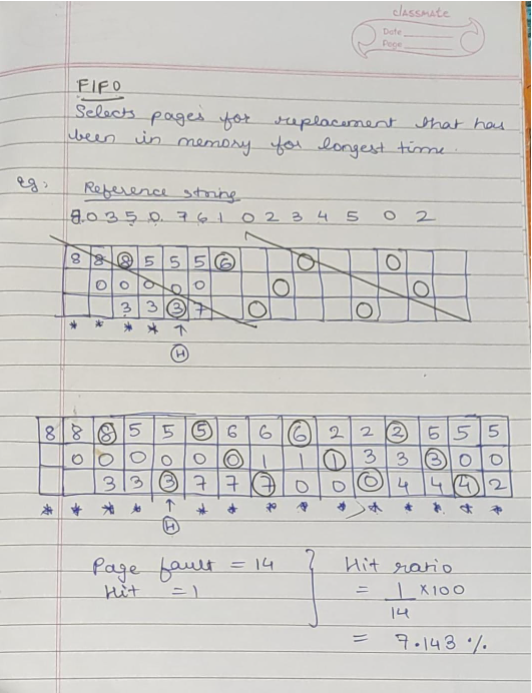 classmate
Date
Page
FIFO
Selects pages for replacement that has
been in memory for longest time.
eg: Reference string
8 0 3 5 0 7 6 1 0 2 3 4 5 0 2
8 8 8 5 5 5 6 0 0
0 0 0 0 0 0 0
3 3 3 7 0 0
* * * * ↑
H
8 8 8 5 5 5 6 6 6 2 2 2 5 5 5
0 0 0 0 0 0 1 1 1 3 3 3 0 0
3 3 3 7 7 7 0 0 0 4 4 4 2
* * * * ↑ * * * * * * * * * *
H
Page fault = 14 } Hit ratio
Hit = 1 = 1/14 × 100
= 7.143 %